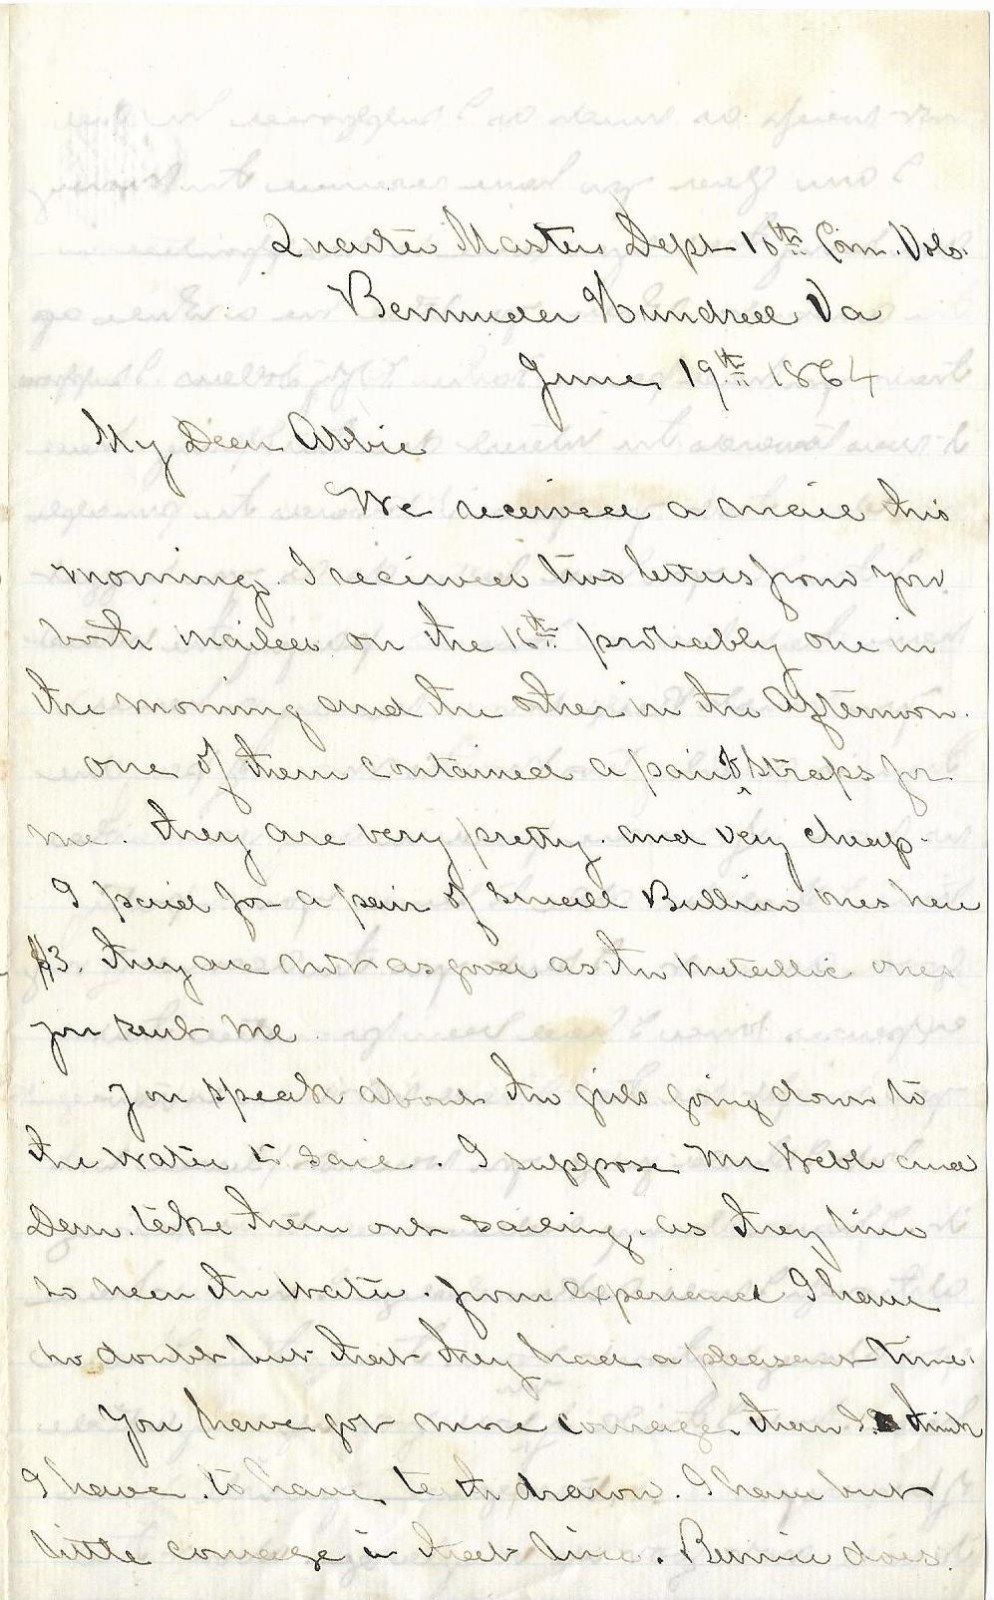 Quarter Masters Dept 10th Con. Vols.
Bermuder Hundred Va
June 19th 1864
My Dear Abbie
We received a mail this
morning. I received two letters from you
both mailed on the 16th probably one in
the morning and the other in the Afternoon.
one of them contained a pair of straps for
me. they are very pretty. and very cheap.
I paid for a pair of small Bullion ones here
$3. they are not as good as the metallic ones
you sent me.
You speak about the girls going down to
the water to sail. I suppose Mr Webb and
Dem. take them out sailing. as they live
so near the water. from experience I have
no doubt but that they had a pleasant time.
You have got more courage. than I think
I have. to have teeth drawn. I have but
little courage in that line. Bernie does